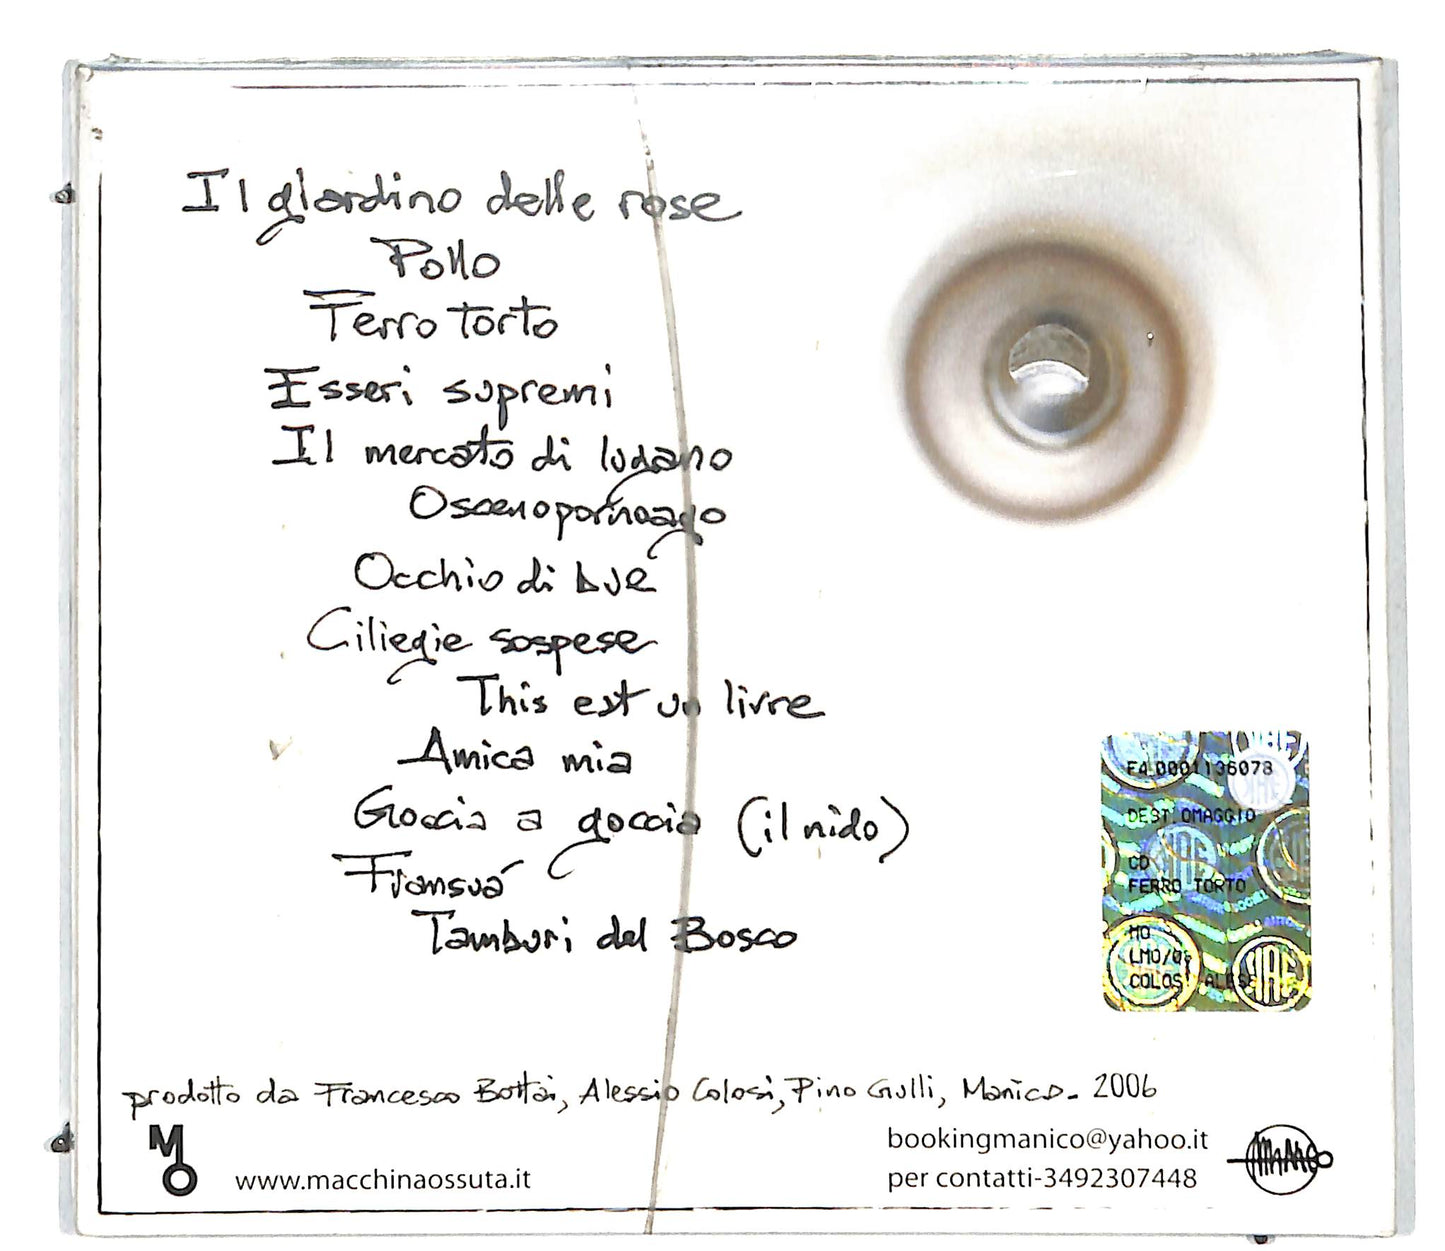 Il giardino delle rose
Pollo
Ferro torto
Esseri supremi
Il mercato di lugano
Oscenopornoago
Occhio di bue
Ciliegie sospese
This est un livre
Amica mia
Goccia a goccia (il nido)
Fransuá
Tamburi del Bosco
F4 0001136078
DEST OMAGGIO
CD
FERRO TORTO
MO
LMO/0
COLOSI ALES
prodotto da Francesco Bottai, Alessio Colosi, Pino Gulli, Manico. 2006
MO
www.macchinaossuta.it
bookingmanico@yahoo.it
per contatti-3492307448
MANICO